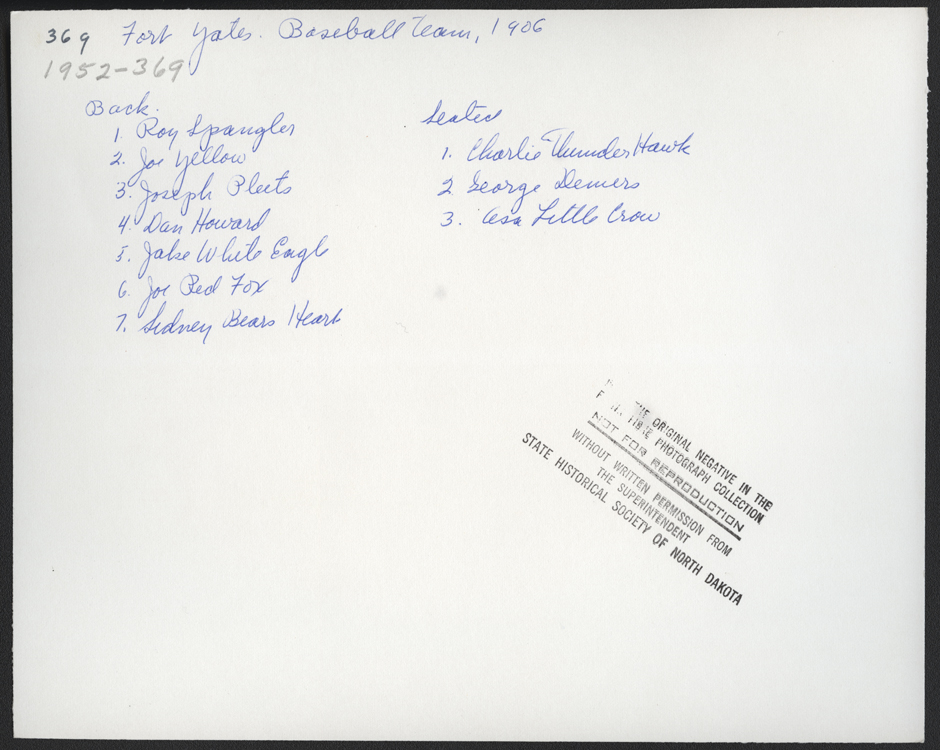 369 Fort Yates. Baseball Team, 1906
1952-369
Back.
1. Roy Spangler
2. Joe Yellow
3. Joseph Pleets
4. Dan Howard
5. Jake White Eagle
6. Joe Red Fox
7. Sidney Bears Heart
Seated
1. Charlie Thunder Hawk
2 George Demers
3. Asa Little Crow
THE ORIGINAL NEGATIVE IN THE
PHOTOGRAPH COLLECTION
NOT FOR REPRODUCTION
WITHOUT WRITTEN PERMISSION FROM
THE SUPERINTENDENT
STATE HISTORICAL SOCIETY OF NORTH DAKOTA